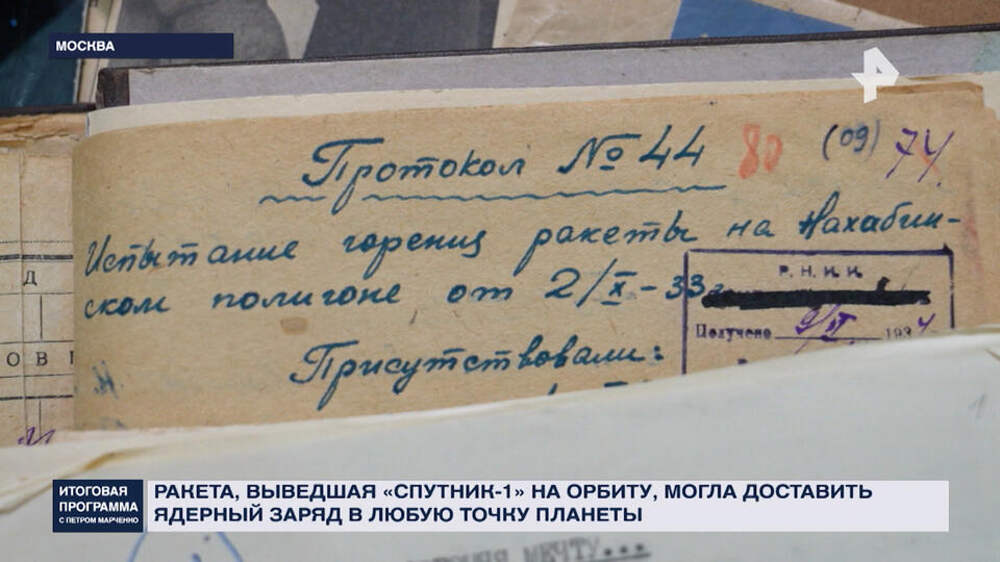 МОСКВА
Протокол № 44 80 (09) 74
Испытание горениц ракеты на Нахабин-
ском полигоне от 2/X-33г
Р.Н.И.И.
Получено 9/VI 1934
Присутствовали:
Д
ОВ
ИТОГОВАЯ
ПРОГРАММА
С ПЕТРОМ МАРЧЕНКО
РАКЕТА, ВЫВЕДШАЯ «СПУТНИК-1» НА ОРБИТУ, МОГЛА ДОСТАВИТЬ
ЯДЕРНЫЙ ЗАРЯД В ЛЮБУЮ ТОЧКУ ПЛАНЕТЫ
МЕЧТУ...